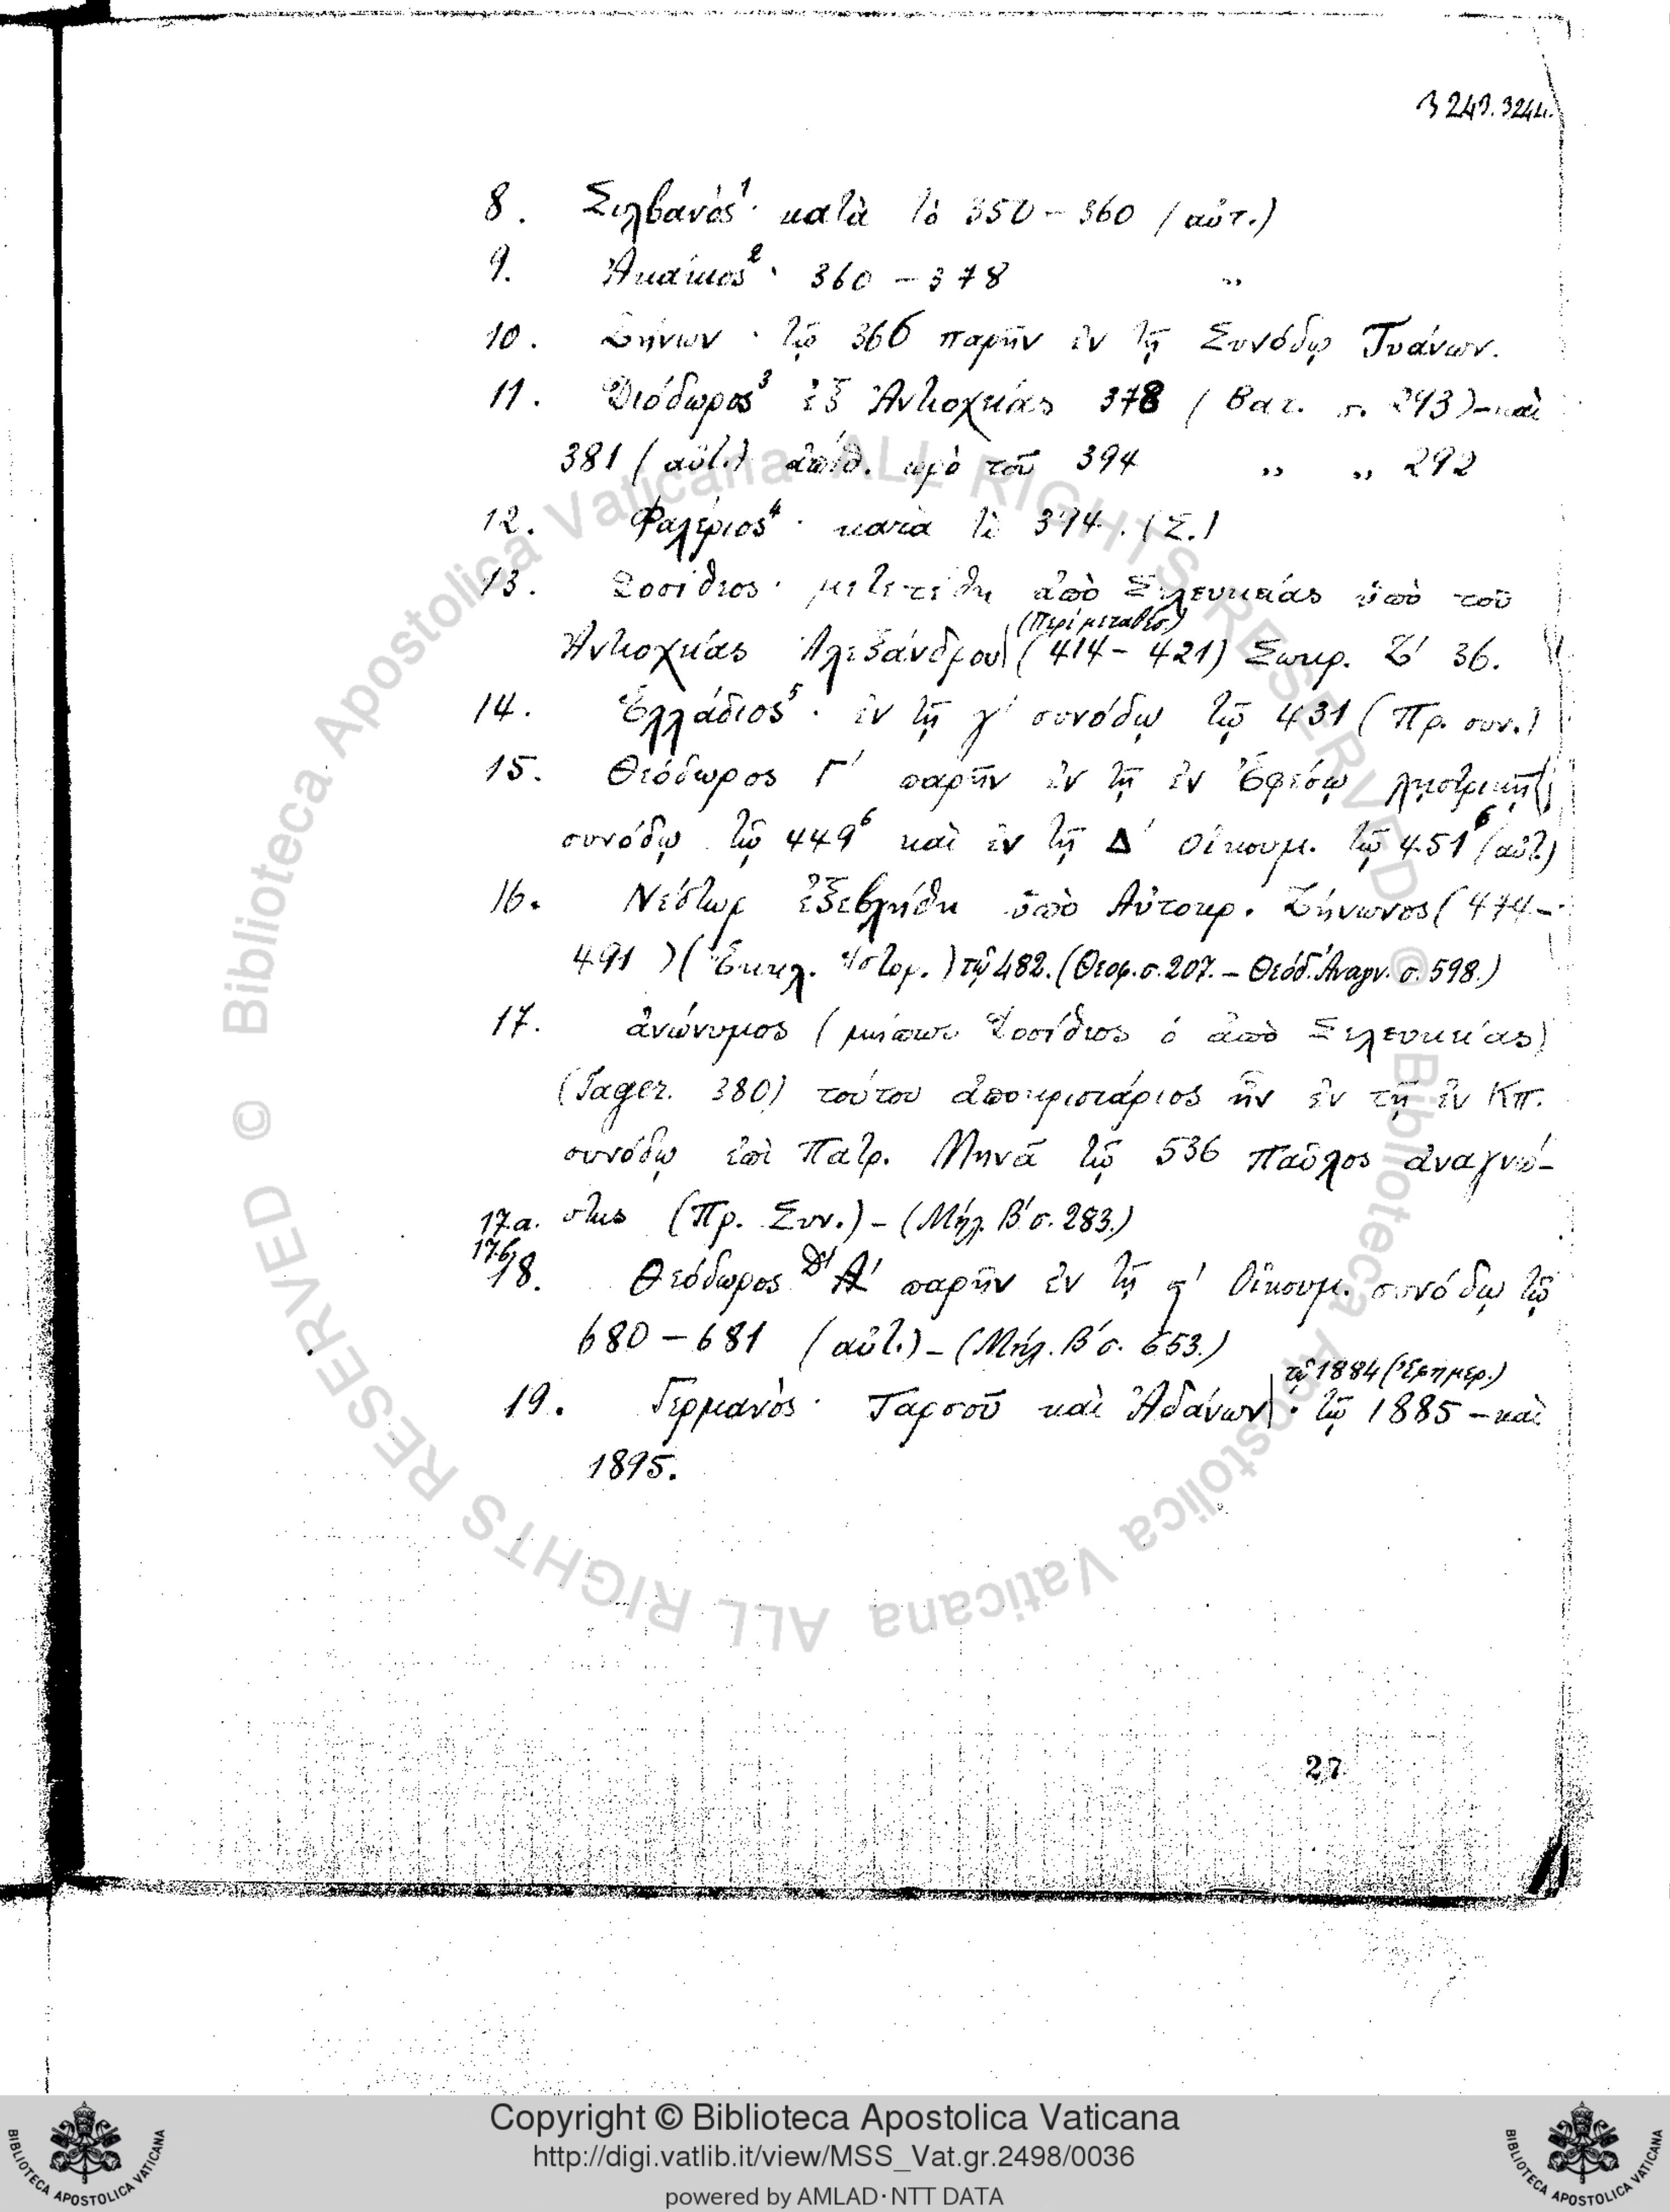 3243.3244.
8. Σιλβανός¹· κατὰ τὸ 350-360 (αὐτ.)
9. Ἀκάκιος²· 360-378 "
10. Ζήνων· τῷ 366 παρῆν ἐν τῇ Συνόδῳ Τυάνων.
11. Διόδωρος³ ἐξ Ἀντιοχείας 378 (Βατ. σ. 293)-καὶ
381 (αὐτ.) ἀπέθ. πρὸ τοῦ 394 " " 292
12. Φαλέριος⁴· κατὰ τὸ 394. (Σ.)
13. Δοσίθεος· μετετέθη ἀπὸ Σελευκείας ὑπὸ τοῦ
(Περὶ μεταθέσ.)
Ἀντιοχείας Ἀλεξάνδρου (414-421) Σωκρ. Ζ' 36.
14. Ἑλλάδιος⁵· ἐν τῇ γ' συνόδῳ τῷ 431 (Πρ. συν.)
15. Θεόδωρος Γ' παρῆν ἐν τῇ ἐν Ἐφέσῳ λῃστρικῇ
συνόδῳ τῷ 449⁶ καὶ ἐν τῇ Δ' Οἰκουμ. τῷ 451⁶ (αὐτ.)
16. Νέστωρ ἐξεβλήθη ὑπὸ Αὐτοκρ. Ζήνωνος (474-
491) (Ἐκκλ. Ἱστορ.) τῷ 482. (Θεοφ. σ. 207. - Θεόδ. Ἀναγν. σ. 598.)
17. ἀνώνυμος (μήπως Δοσίθεος ὁ ἀπὸ Σελευκείας)
(Jager. 380) τούτου ἀποκρισιάριος ἦν ἐν τῇ ἐν Κπ.
συνόδῳ ἐπὶ Πατρ. Μηνᾶ τῷ 536 Παῦλος ἀναγνώ-
17.a. στης (Πρ. Συν.) - (Μήλ. Β' σ. 283.)
17.β
18. Θεόδωρος Δ' Α' παρῆν ἐν τῇ ϛ' Οἰκουμ. συνόδῳ τῷ
680-681 (αὐτ.) - (Μήλ. Β' σ. 653.)
τῷ 1884 (Ἐφημερ.)
19. Γερμανὸς· Ταρσοῦ καὶ Ἀδάνων· τῷ 1885 - καὶ
1895.
27
© Biblioteca Apostolica Vaticana ALL RIGHTS RESERVED © Biblioteca Apostolica Vaticana ALL RIGHTS RESERVED
BIBLIOTECA APOSTOLICA VATICANA
Copyright © Biblioteca Apostolica Vaticana
http://digi.vatlib.it/view/MSS_Vat.gr.2498/0036
powered by AMLAD·NTT DATA
BIBLIOTECA APOSTOLICA VATICANA